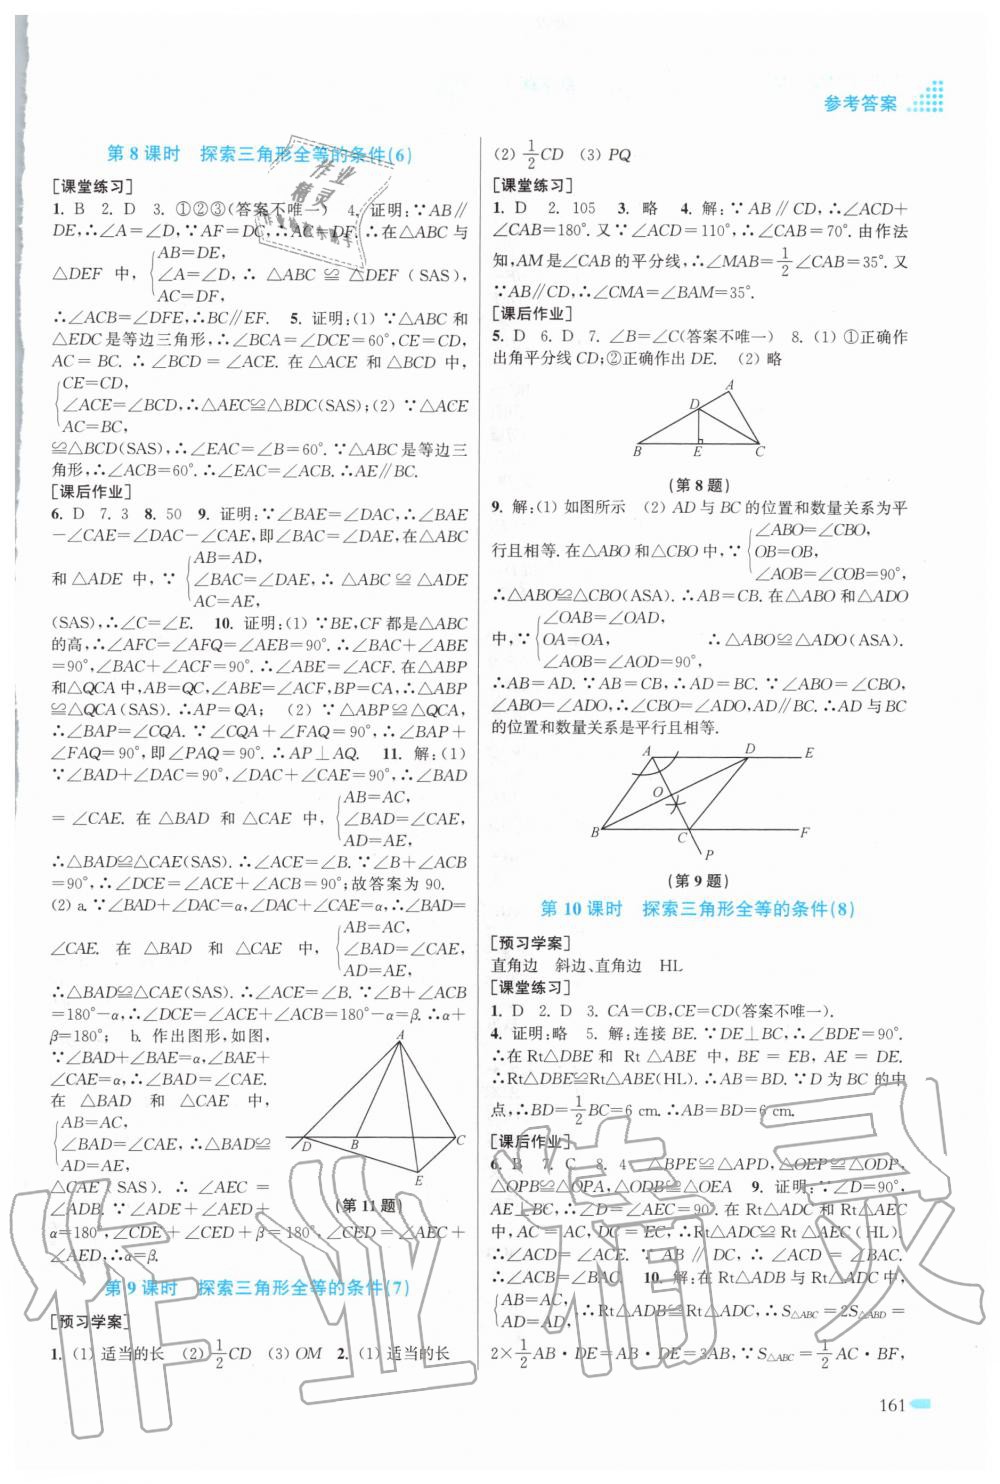 参考答案
第 8 课时　探索三角形全等的条件(6)
[课堂练习]
1. B　2. D　3. ①②③(答案不唯一)　4. 证明:∵AB∥
DE,∴∠A=∠D,∵AF=DC,∴AC=DF. ∴在△ABC 与
AB=DE,
△DEF 中, ∠A=∠D, ∴ △ABC ≌ △DEF (SAS),
AC=DF,
∴∠ACB=∠DFE,∴BC∥EF.　5. 证明:(1) ∵△ABC 和
△EDC 是等边三角形,∴∠BCA=∠DCE=60°. CE=CD,
AC = BC. ∴ ∠BCD = ∠ACE. 在 △ACE 和 △BCD 中,
CE=CD,
∠ACE=∠BCD,∴△AEC≌△BDC(SAS);(2) ∵△ACE
AC=BC,
≌△BCD(SAS),∴∠EAC=∠B=60°. ∵△ABC 是等边三
角形,∴∠ACB=60°. ∴∠EAC=∠ACB. ∴AE∥BC.
[课后作业]
6. D　7. 3　8. 50　9. 证明:∵∠BAE=∠DAC,∴∠BAE
－∠CAE=∠DAC－∠CAE,即∠BAC=∠DAE,在△ABC
AB=AD,
和△ADE 中, ∵ ∠BAC=∠DAE, ∴△ABC ≌ △ADE
AC=AE,
(SAS),∴∠C=∠E.　10. 证明:(1) ∵BE,CF 都是△ABC
的高,∴∠AFC=∠AFQ=∠AEB=90°. ∴∠BAC+∠ABE
=90°,∠BAC+∠ACF=90°. ∴∠ABE=∠ACF. 在△ABP
和△QCA 中,AB=QC,∠ABE=∠ACF,BP=CA,∴△ABP
≌△QCA(SAS). ∴AP=QA;　(2) ∵△ABP≌△QCA,
∴∠BAP=∠CQA. ∵∠CQA+∠FAQ=90°,∴∠BAP+
∠FAQ=90°,即∠PAQ=90°. ∴AP⊥AQ.　11. 解:(1)
∵∠BAD+∠DAC=90°,∠DAC+∠CAE=90°,∴∠BAD
AB=AC,
= ∠CAE. 在 △BAD 和 △CAE 中, ∠BAD=∠CAE,
AD=AE,
∴△BAD≌△CAE(SAS). ∴∠ACE=∠B. ∵∠B+∠ACB
=90°,∴∠DCE=∠ACE+∠ACB=90°;故答案为 90.
(2) a. ∵∠BAD+∠DAC=α,∠DAC+∠CAE=α,∴∠BAD=
AB=AC,
∠CAE. 在 △BAD 和 △CAE 中, ∠BAD=∠CAE,
AD=AE,
∴△BAD≌△CAE(SAS). ∴∠ACE=∠B. ∵∠B+∠ACB
=180°－α,∴∠DCE=∠ACE+∠ACB=180°－α=β. ∴α+
β=180°;　b. 作出图形,如图,
∵∠BAD+∠BAE=α,∠BAE+
∠CAE=α,∴∠BAD=∠CAE.
在 △BAD 和 △CAE 中,
AB=AC,
∠BAD=∠CAE,∴△BAD≌
AD=AE,
△CAE (SAS). ∴ ∠AEC =
∠ADB. ∵∠ADE+∠AED+
α=180°,∠CDE+∠CED+β=180°,∠CED=∠AEC+
∠AED,∴α=β.
A
D
B
C
E
(第 11 题)
第 9 课时　探索三角形全等的条件(7)
[预习学案]
1. (1) 适当的长　(2) 1/2CD　(3) OM　2. (1) 适当的长
(2) 1/2CD　(3) PQ
[课堂练习]
1. D　2. 105　3. 略　4. 解:∵AB∥CD,∴∠ACD+
∠CAB=180°. 又∵∠ACD=110°,∴∠CAB=70°. 由作法
知,AM是∠CAB的平分线,∴∠MAB=1/2∠CAB=35°. 又
∵AB∥CD,∴∠CMA=∠BAM=35°.
[课后作业]
5. D　6. D　7. ∠B=∠C(答案不唯一)　8. (1) ①正确作
出角平分线 CD;②正确作出 DE.　(2) 略
A
D
B
E
C
(第 8 题)
9. 解:(1) 如图所示　(2) AD 与 BC 的位置和数量关系为平
∠ABO=∠CBO,
行且相等. 在△ABO 和△CBO 中,∵ OB=OB,
∠AOB=∠COB=90°,
∴△ABO≌△CBO(ASA). ∴AB=CB. 在△ABO 和△ADO
∠OAB=∠OAD,
中,∵ OA=OA, ∴△ABO≌△ADO(ASA).
∠AOB=∠AOD=90°,
∴AB=AD. ∵AB=CB,∴AD=BC. ∵∠ABO=∠CBO,
∠ABO=∠ADO,∴∠CBO=∠ADO,AD∥BC. ∴AD 与BC
的位置和数量关系是平行且相等.
A
D
E
O
B
C
F
P
(第 9 题)
第 10 课时　探索三角形全等的条件(8)
[预习学案]
直角边　斜边、直角边　HL
[课堂练习]
1. D　2. D　3. CA=CB,CE=CD(答案不唯一).
4. 证明:略　5. 解:连接 BE. ∵DE⊥BC,∴∠BDE=90°.
∴在Rt△DBE 和 Rt △ABE 中, BE = EB, AE = DE.
∴Rt△DBE≌Rt△ABE(HL). ∴AB=BD. ∵D 为 BC 的中
点,∴BD=1/2BC=6 cm. ∴AB=BD=6 cm.
[课后作业]
6. B　7. C　8. 4　△BPE≌△APD, △OEP≌△ODP,
△OPB≌△OPA,△ODB≌△OEA　9. 证明:∵∠D=90°,
AE⊥BC,∴∠D=∠AEC=90°. 在Rt△ADC 和Rt△AEC
中,AC = AC, DC = EC, ∴Rt△ADC≌Rt△AEC (HL).
∴∠ACD = ∠ACE. ∵ AB ∥ DC, ∴ ∠ACD = ∠BAC.
∴∠ACE=∠BAC.　10. 解:在Rt△ADB 与Rt△ADC 中,
AB=AC,
AD=AD, ∴Rt△ADB≌Rt△ADC,∴S△ABC=2S△ABD=
2×1/2AB·DE=AB·DE=3AB,∵S△ABC=1/2AC·BF,
161